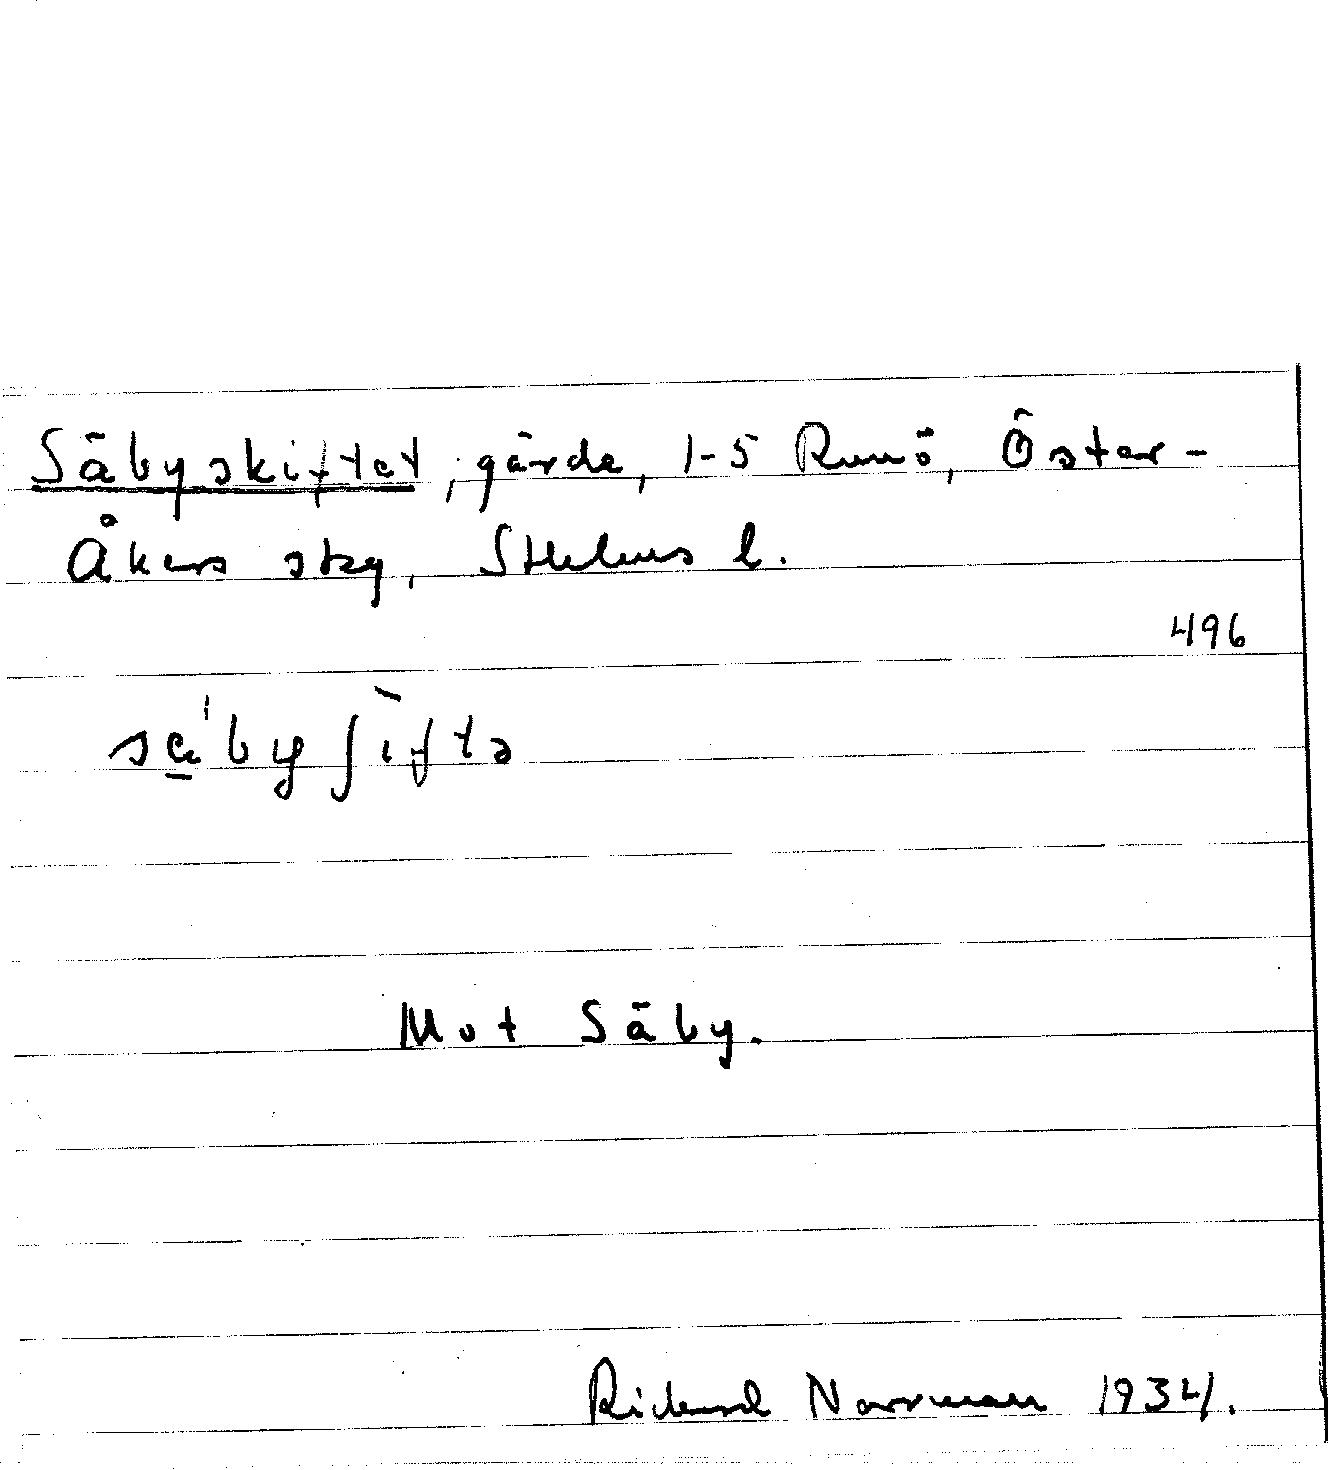 Säbyskiftet, gärde, 1-5 Runö, Öster-
Åkers skg, Sthlms l.
496
sä̱'byʃìftə
Mot Säby.
Rickard Norrman 1934.